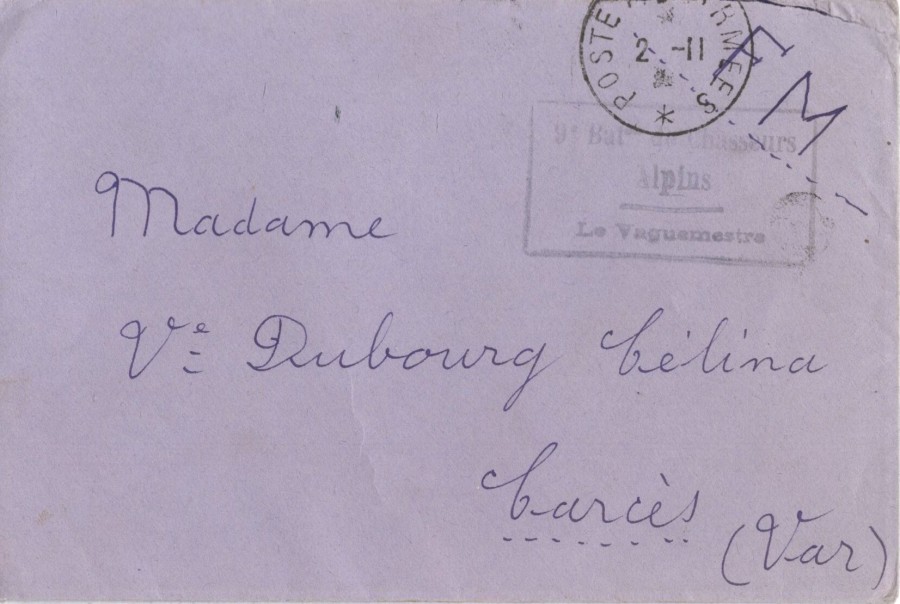 POSTE AUX ARMEES
2 -11
*
F M
9e Batn de Chasseurs
Alpins
Le Vaguemestre
Madame
Ve Dubourg Célina
Carcès
(Var)